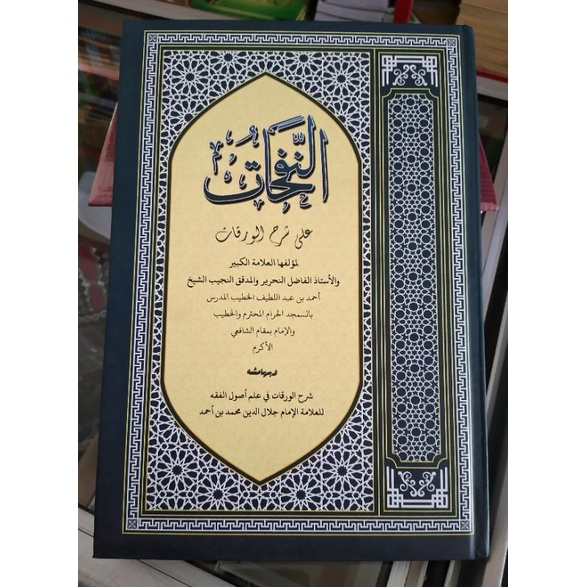 النَّفَحَاتُ
على شرح الورقات
لمؤلفها العلامة الكبير
والأستاذ الفاضل النحرير والمدقق النجيب الشيخ
أحمد بن عبد اللطيف الخطيب المدرس
بالسمجد الحرام المحترم والخطيب
والإمام بمقام الشافعي
الأكرم
وبهامشه
شرح الورقات في علم أصول الفقه
للعلامة الإمام جلال الدين محمد بن أحمد